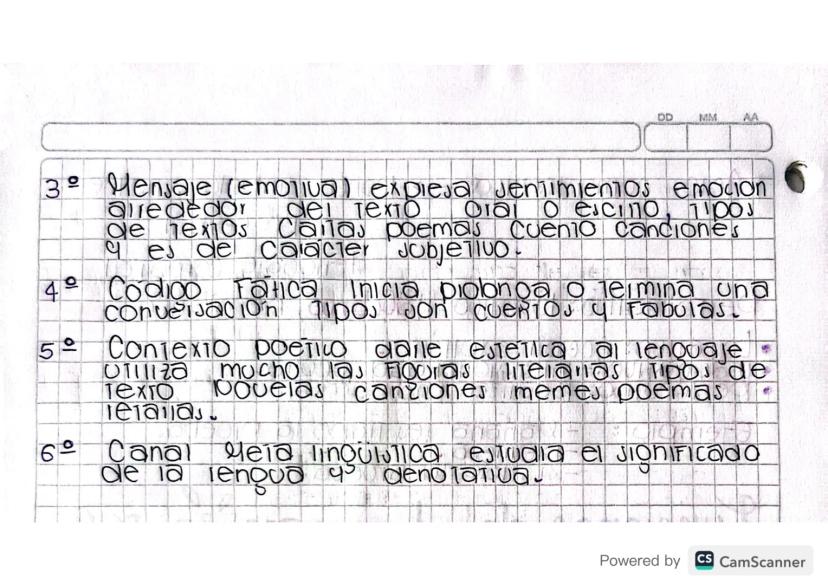 DD MM AA
3º Mensaje (emotiva) expresa sentimientos emocion
alrededor del texto oral o escrito, tipos
de textos Cartas poemas cuento canciones
y es de carácter subjetivo.
4º Codigo Fática Inicia prolonga o termina una
conversación tipos son cuentos y Fabulas.
5º Contexto poetico darle estetica al lenguaje
utiliza mucho las Figuras literarias tipos de
texto Novelas canziones memes poemas
letanias.
6º Canal Meta lingüistica estudia el significado
de la lengua y denotativa.
Powered by CS CamScanner